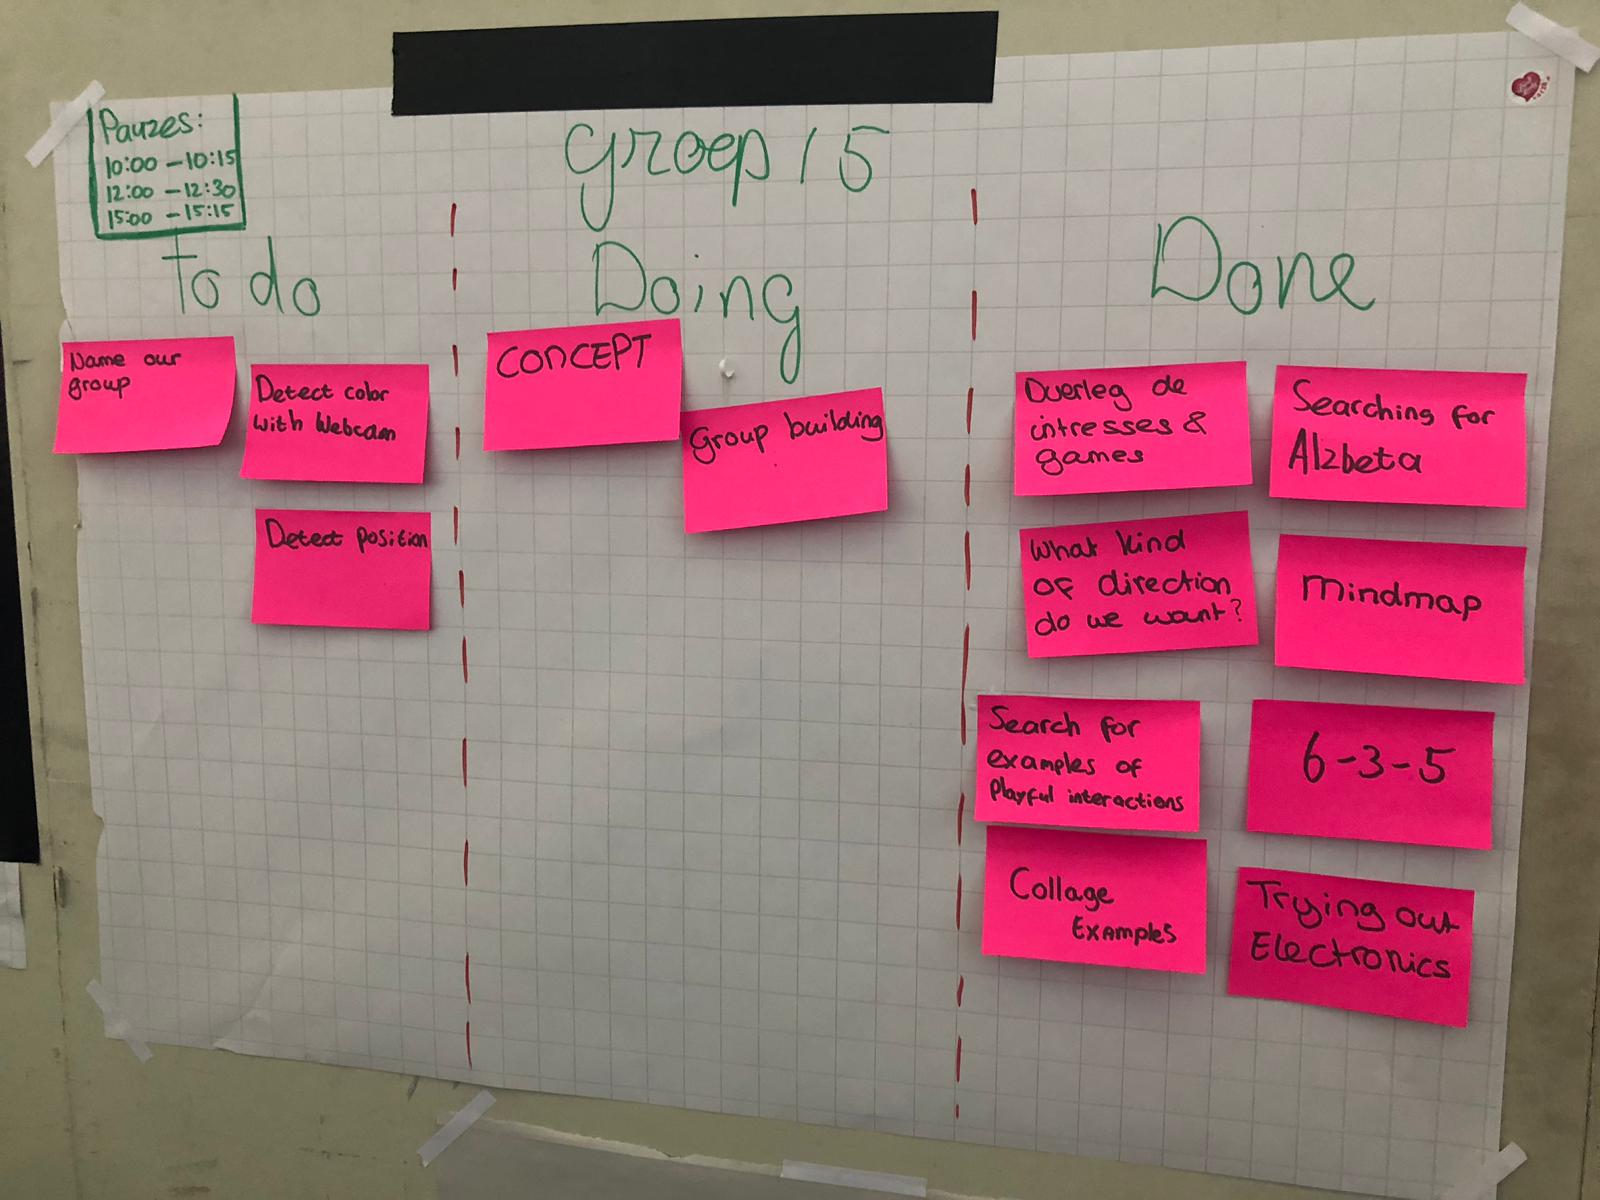 Pauzes:
10:00 - 10:15
12:00 - 12:30
15:00 - 15:15
groep 15
To do
Doing
Done
Name our
group
Detect color
with Webcam
Detect position
CONCEPT
Group building
Overleg de
intresses &
games
Searching for
Alzbeta
What kind
of direction
do we want?
Mindmap
Search for
examples of
Playful interactions
6-3-5
Collage
Examples
Trying out
Electronics